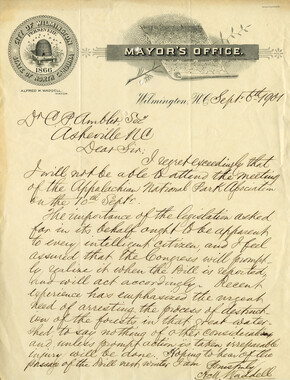 CITY OF WILMINGTON
STATE OF NORTH CAROLINA
1866
ALFRED M. WADDELL,
MAYOR.
MAYOR'S OFFICE.
Wilmington, N.C. Sept. 6th 1901
Dr C. P. Ambler Sec
Asheville NC
Dear Sir:
I regret exceedingly that
I will not be able to attend the meeting
of the Appalachian National Park Association
on the 10th Sept.
The importance of the legislation asked
for in its behalf ought to be apparent
to every intelligent citizen, and I feel
assured that the Congress will prompt-
ly realize it when the Bill is reported,
and will act accordingly. Recent
experience has emphasized the urgent
need of arresting the process of destruct-
ion of the forests in that great water
shed to say nothing of other considerations
and unless prompt action is taken irreparable
injury will be done. Hoping to hear of the
passage of the Bill next winter I am
A M Waddell